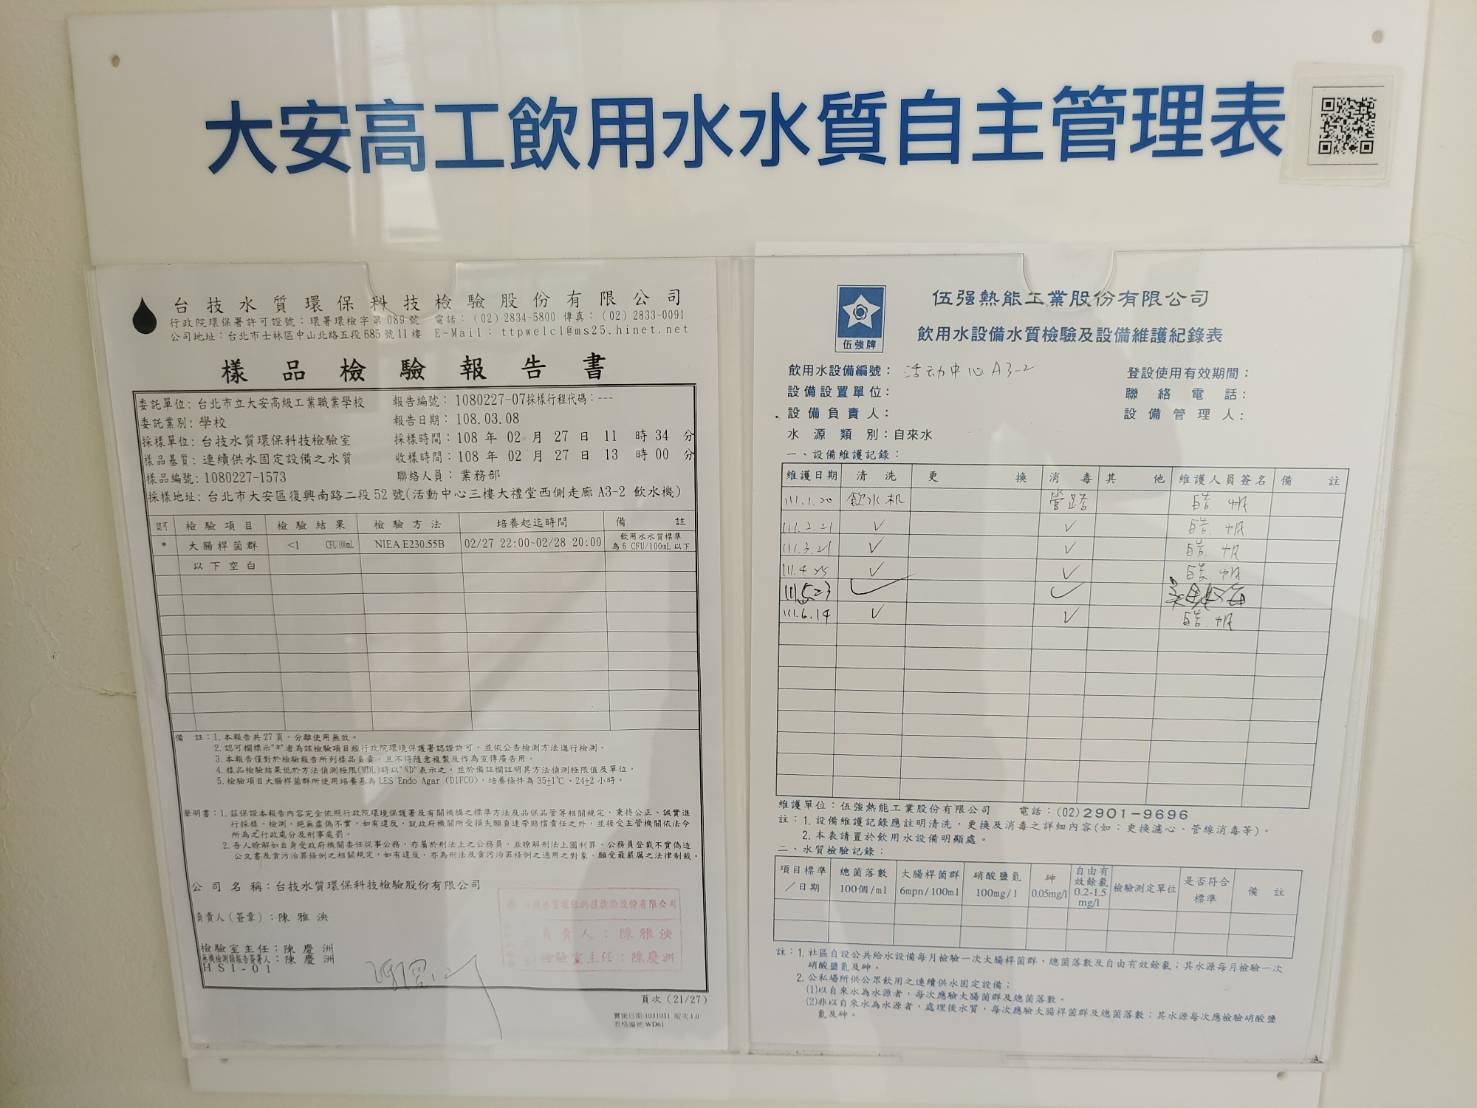 大安高工飲用水水質自主管理表
台技水質環保科技檢驗股份有限公司
行政院環保署許可證號：環署環檢字第089號 電話：（02）2834-5800 傳真：（02）2833-0091
公司地址：台北市士林區中山北路五段685號11樓 E-Mail：ttpwelcl@ms25.hinet.net
樣品檢驗報告書
委託單位：台北市立大安高級工業職業學校 報告編號：1080227-07採樣行程代碼：---
委託業別：學校 報告日期：108.03.08
採樣單位：台技水質環保科技檢驗室 採樣時間：108 年 02 月 27 日 11 時 34 分
樣品基質：連續供水固定設備之水質 收樣時間：108 年 02 月 27 日 13 時 00 分
樣品編號：1080227-1573 聯絡人員：業務部
採樣地址：台北市大安區復興南路二段52號(活動中心三樓大禮堂西側走廊 A3-2 飲水機)
認可 檢驗項目 檢驗結果 檢驗方法 培養起迄時間 備註
* 大腸桿菌群 <1 CFU/100mL NIEA E230.55B 02/27 22:00~02/28 20:00 飲用水水質標準為6 CFU/100mL以下
以下空白
備 註：1.本報告共27頁，分離使用無效。
2.認可欄標示"*"者為該檢驗項目經行政院環境保護署認證許可，並依公告檢測方法進行檢測。
3.本報告僅對於檢驗報告所列樣品負責，且不得隨意複製及作為宣傳廣告用。
4.樣品檢驗結果低於方法偵測極限(MDL)時以"ND"表示之，並於備註欄註明其方法偵測極限值及單位。
5.檢驗項目大腸桿菌群所使用培養基為LES Endo Agar (DIFCO)，培養條件為35±1℃，24±2小時。
聲明書：1.茲保證本報告內容完全依照行政院環境保護署及有關機構之標準方法及品保品管等相關規定，秉持公正、誠實進
行採樣、檢測。絕無虛偽不實，如有違反，就政府機關所受損失願負連帶賠償責任之外，並接受主管機關依法令
所為之行政處分及刑事處罰。
2.吾人瞭解如自身受政府機關委任從事公務，亦屬於刑法上之公務員，並瞭解刑法上圖利罪、公務員登載不實偽造
公文書及貪污治罪條例之相關規定，如有違反，亦為刑法及貪污治罪條例之適用之對象，願受最嚴厲之法律制裁。
公司名稱：台技水質環保科技檢驗股份有限公司
負責人（簽章）：陳雅泱
檢驗室主任：陳慶洲
無機檢測類報告簽署人：陳慶洲
HSI-01
負責人：陳雅泱
檢驗室主任：陳慶洲
頁次（21/27）
伍強牌
伍強熱能工業股份有限公司
飲用水設備水質檢驗及設備維護紀錄表
飲用水設備編號：活动中心 A3-2 登設使用有效期間：
設備設置單位： 聯絡電話：
設備負責人： 設備管理人：
水源類別：自來水
一、設備維護記錄：
維護日期 清洗 更換 消毒 其他 維護人員簽名 備註
111.1.20 飲水机 管路
111.2.21 ✓ ✓
111.3.21 ✓ ✓
111.4.25 ✓ ✓
111.5.23 ✓ ✓
111.6.14 ✓ ✓
維護單位：伍強熱能工業股份有限公司 電話：(02)2901-9696
註：1.設備維護記錄應註明清洗、更換及消毒之詳細內容(如：更換濾心、管線消毒等)。
2.本表請置於飲用水設備明顯處。
二、水質檢驗記錄：
項目標準／日期 總菌落數 100個/ml 大腸桿菌群 6mpn/100ml 硝酸鹽氮 100mg/l 砷 0.05mg/l 自由有效餘氯 0.2-1.5 mg/l 檢驗測定單位 是否符合標準 備註
註：1.社區自設公共給水設備每月檢驗一次大腸桿菌群、總菌落數及自由有效餘氯；其水源每月檢驗一次
硝酸鹽氮及砷。
2.公私場所供公眾飲用之連續供水固定設備：
(1)以自來水為水源者，每次應驗大腸桿菌群及總菌落數。
(2)非以自來水為水源者，處理後水質，每次應驗大腸桿菌群及總菌落數；其水源每次應檢驗硝酸鹽
氮及砷。